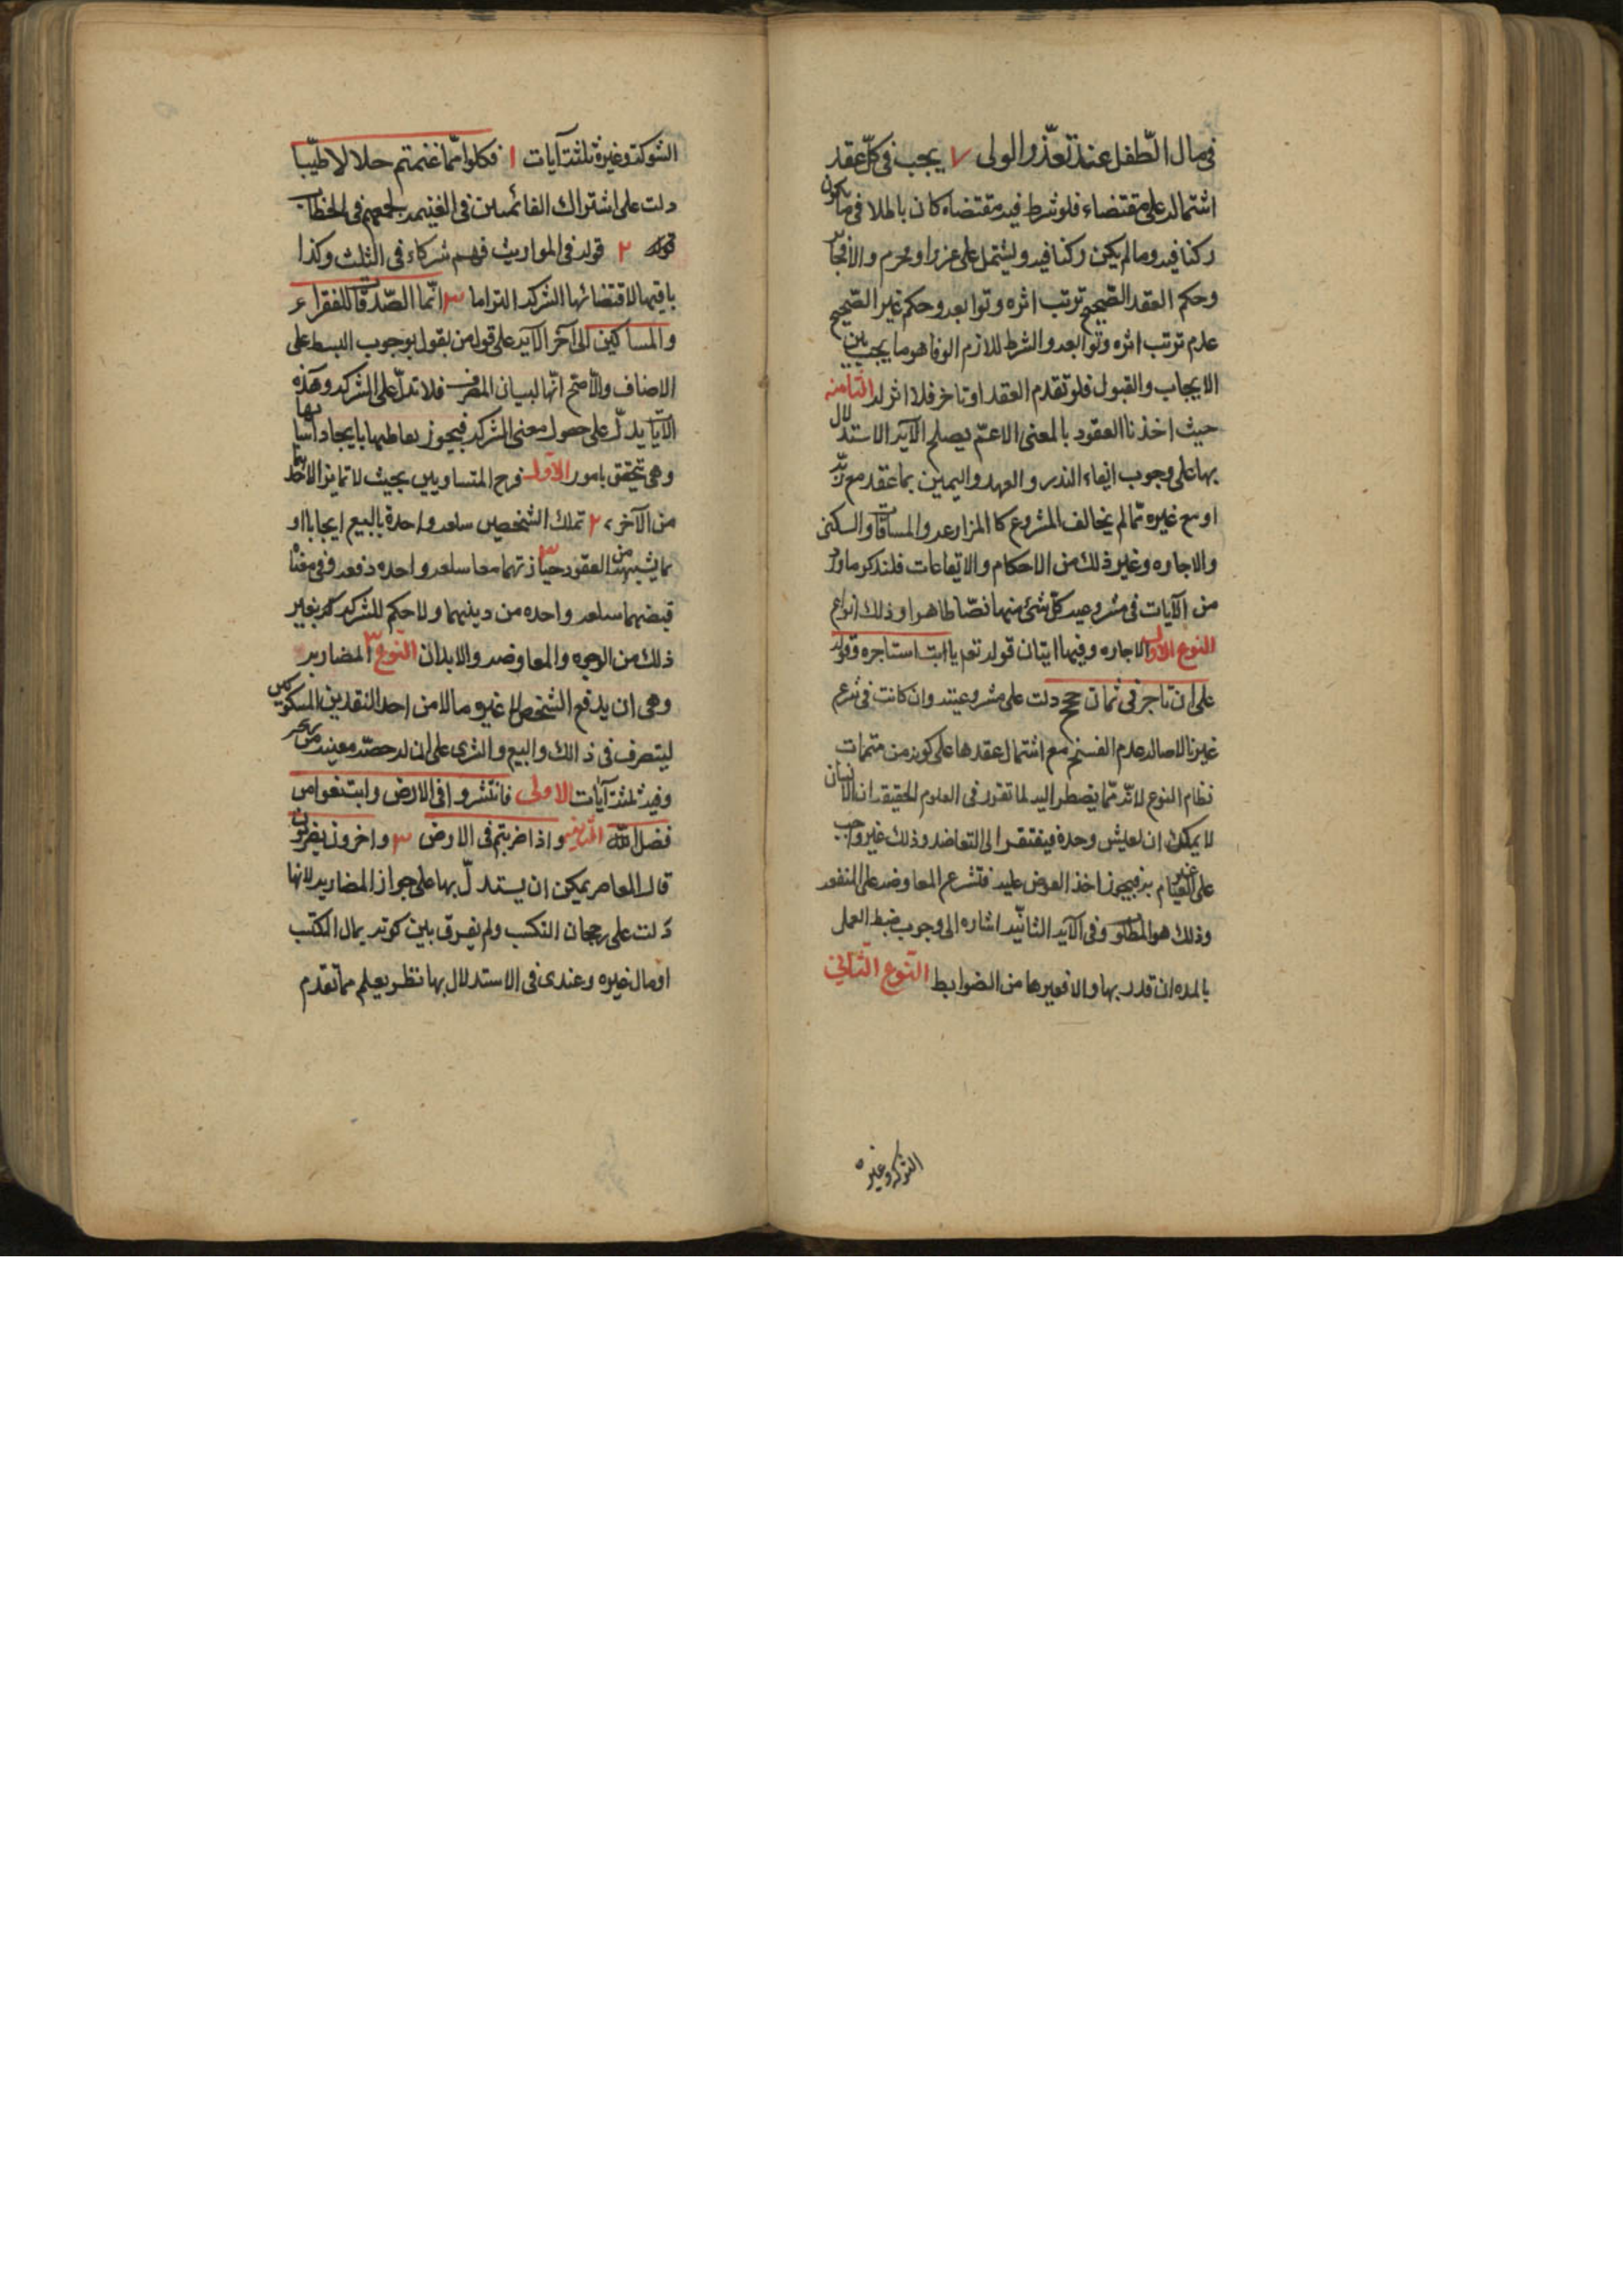 فى مال الطفل عند تعذر الولى ٧ يجب فى كل عقد
اشتماله على مقتضاء فلو شرط فيه مقتضاه كان باطلا فى ما يكون
ركنا فيه وما لم يكن ركنا فيه ويشتمل على غررا ومحرم والا
وحكم العقد الصحيح ترتب اثره وتوابعه وحكم غير الصحيح
عدم ترتب اثره وتوابعه والشرط للازم الوفا هو ما يجب بين
الايجاب والقبول فلو تقدم العقد او تاخر فلا اثر له الثامنه
حيث اخذنا العقود بالمعنى الاعم يصلح الآيه الاستدلال
بها على وجوب ايفاء النذر والعهد واليمين بما عقد مع ربه
او مع غيره مما لم يخالف المشروع كا المزارعه والمساقات والسكنى
والاجاره وغير ذلك من الاحكام والايقاعات فلنذكر ما ورد
من الآيات فى مشروعيه كل شئ منها نصا ظاهرا وذلك انواع
النوع الاول الاجاره وفيها ايتان قوله تع يا ابت استاجره وقوله
على ان تاجرنى ثمان حجج دلت على مشروعيته وان كانت فى شرع
غيرنا لاصاله عدم الفسخ مع اشتمال عقدها على كونه من متممات
نظام النوع لانه مما يضطر اليه لما تقرر فى العلوم الحقيقه ان الانسان
لا يمكن ان يعيش وحده فيفتقر الى التعاضد وذلك غير واجب
على الغير القيام به فيجوز اخذ العوض عليه فتشرع المعاوضه على المنفعه
وذلك هو المطلوب وفى الآيه الثانيه اشاره الى وجوب ضبط العمل
بالمده ان قدر بها والا فغيرها من الضوابط النوع الثانى
الشركه وغيره
الشركة وغيره ثلثة آيات ١ فكلوا مما غنمتم حلالا طيبا
دلت على اشتراك الغانمين فى الغنيمه لجمعهم فى الخطاب
قوله ٢ قوله فى المواريث فهم شركاء فى الثلث وكذا
باقيها لاقتضائها الشركه التزاما ٣ انما الصدقات للفقراء
والمساكين الى آخر الآيه على قول من يقول بوجوب البسط على
الاصناف والاصح انها لبيان المصرف فلا تدل على الشركه وهذه
الآيات يدل على حصول معنى الشركه فيجوز تعاطيها بايجاد اسبابها
وهى تتحقق بامور الاول مزج المتساويين بحيث لا تمايز لاحدهما
من الآخر ٢ تملك الشخصين سلعه واحدة بالبيع ايجابا او
ما يشبهه من العقود ٣ حيازتهما معا سلعه واحده دفعه وفى معناه
قبضهما سلعه واحده من دينهما ولا حكم للشركه بغير
ذلك من الوجوه والمعاوضه والابدان النوع ٣ المضاربه
وهى ان يدفع الشخص الى غيره مالا من احد النقدين المسكوكين
ليتصرف فى ذالك والبيع والشرى على ان له حصه معينه من
وفيه ثلثة آيات الاولى فانتشروا فى الارض وابتغوا من
فضل الله الثانيه واذا ضربتم فى الارض ٣ واخرون يضربون
قال المعاصر يمكن ان يستدل بها على جواز المضاربه لانها
دلت على رجحان التكسب ولم يفرق بين كونه بمال المكتسب
او مال غيره وعندى فى الاستدلال بها نظر يعلم مما تقدم